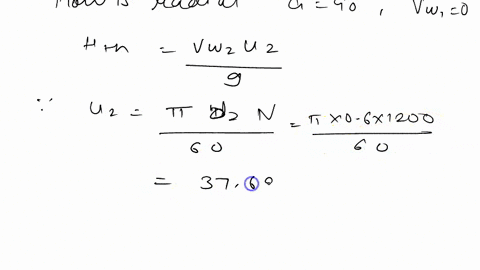 flow is radial α = 90°, Vw₁=0
Hth = Vw₂ U₂ / g
∵ U₂ = π D₂ N / 60 = π × 0.6 × 1200 / 60
= 37.60